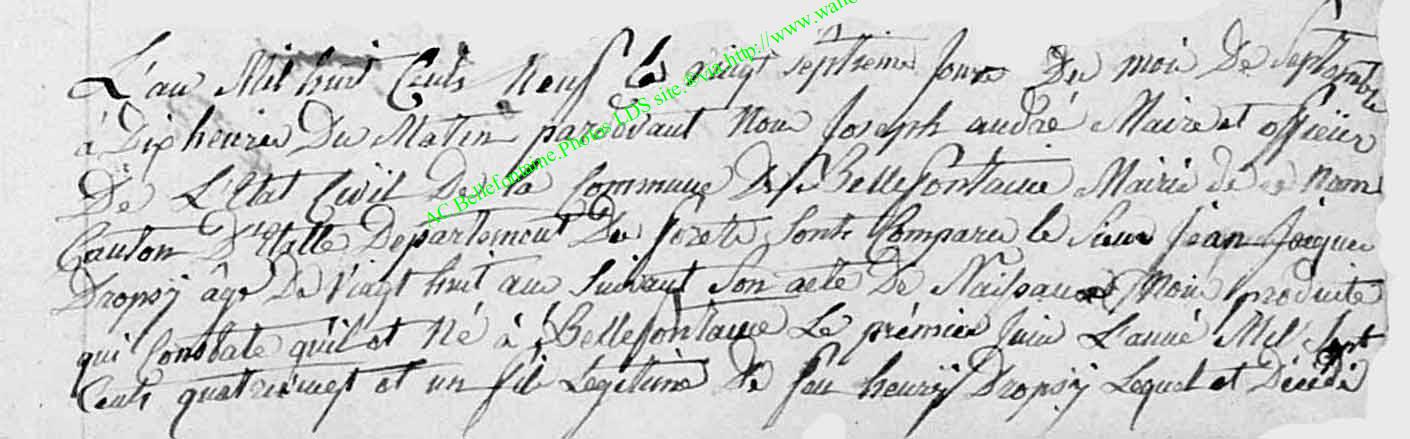 L'an Mil huit Cents Neuf le vingt séptieme Jour Du moi De Septembre
à Dix heures Du Matin pardevant Nous Joseph andré Maire et officier
De L'Etat Civil De la Commune De Bellefontaine Mairie de ce Nom
Canton D'Etalle Departement Des forets Sont Comparu le Sieur jean Jacque
Dropsÿ âge De Vingt huit ans Suivant Son acte De Naissance Nous produite
qui Constate qu'il et Né à Bellefontaine Le prémier Juin L'anné Mil Sept
Cents quatrevingt et un fils Legitime De feu henrÿ Dropsÿ Lequel et Décédé
AC Bellefontaine.Photos LDS site.®via.http://www.